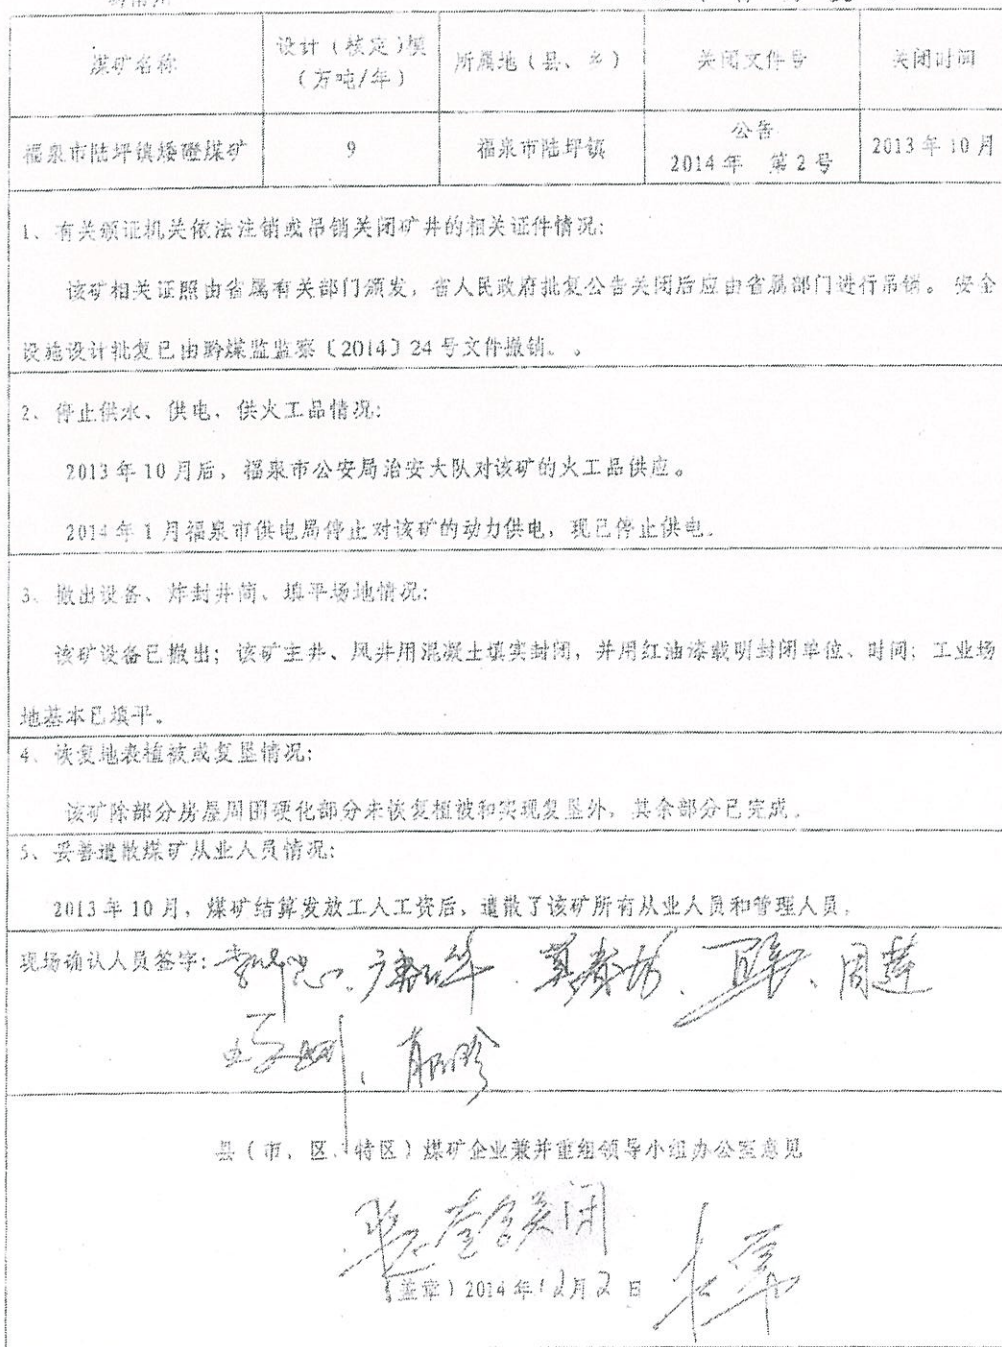 煤矿名称
设计（核定）规
（万吨/年）
所属地（县、乡）
关闭文件号
关闭时间
福泉市陆坪镇矮磴煤矿
9
福泉市陆坪镇
公告
2014年 第2号
2013年10月
1、有关颁证机关依法注销或吊销关闭矿井的相关证件情况：
该矿相关证照由省属有关部门颁发，省人民政府批复公告关闭后应由省属部门进行吊销。安全
设施设计批复已由黔煤监监察〔2014〕24号文件撤销。。
2、停止供水、供电、供火工品情况：
2013年10月后，福泉市公安局治安大队对该矿的火工品供应。
2014年1月福泉市供电局停止对该矿的动力供电，现已停止供电。
3、撤出设备、炸封井筒、填平场地情况：
该矿设备已撤出；该矿主井、风井用混凝土填实封闭，并用红油漆载明封闭单位、时间；工业场
地基本已填平。
4、恢复地表植被或复垦情况：
该矿除部分房屋周围硬化部分未恢复植被和实现复垦外，其余部分已完成。
5、妥善遣散煤矿从业人员情况：
2013年10月，煤矿结算发放工人工资后，遣散了该矿所有从业人员和管理人员。
现场确认人员签字：
周莲
县（市、区、特区）煤矿企业兼并重组领导小组办公室意见
关闭
（盖章）2014年12月2日